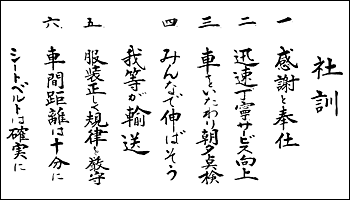 社訓
一 感謝と奉仕
二 迅速丁寧サービス向上
三 車をいたわり朝夕点検
四 みんなで伸ばそう
我等が輸送
五 服装正しく規律を厳守
六 車間距離は十分に
シートベルトは確実に